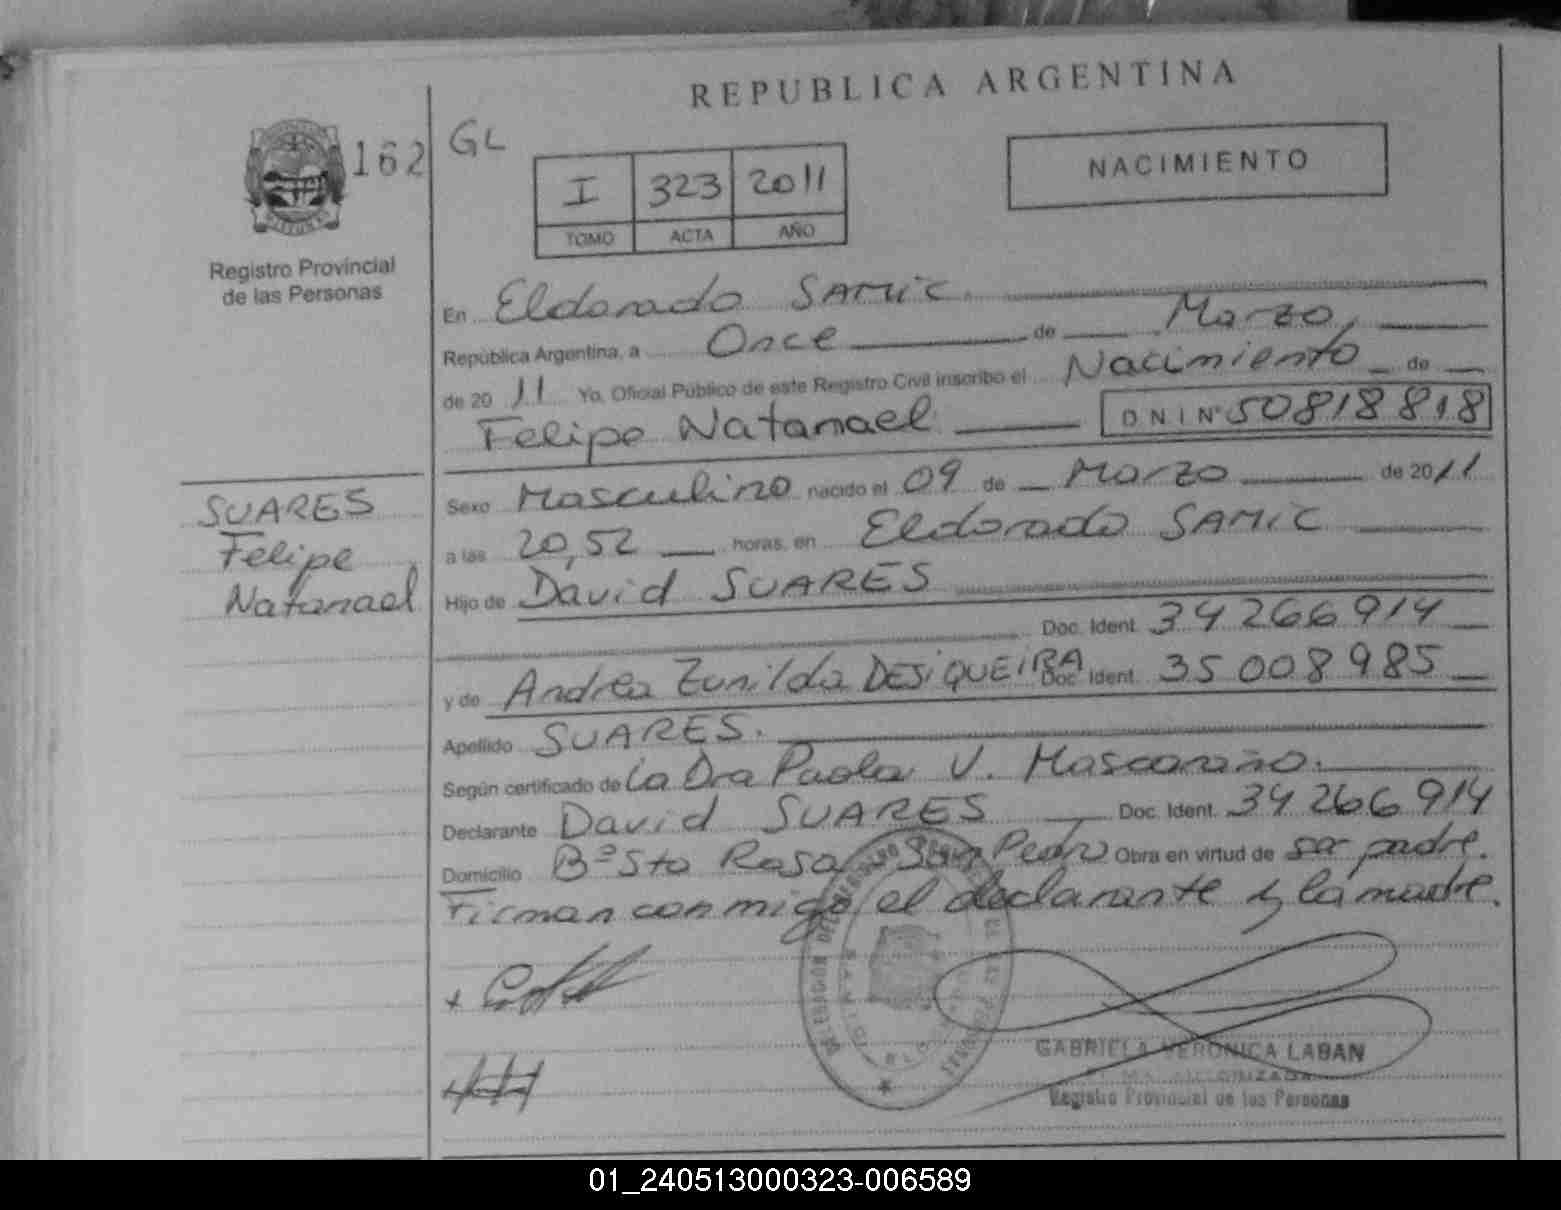 REPUBLICA ARGENTINA
162
GL
I 323 2011
TOMO ACTA AÑO
NACIMIENTO
Registro Provincial
de las Personas
En Eldorado SAMIC
República Argentina, a Once de Marzo,
de 2011 Yo, Oficial Público de este Registro Civil inscribo el Nacimiento de
Felipe Natanael D N I Nº 50818818
SUARES
Felipe
Natanael
Sexo Masculino nacido el 09 de Marzo de 2011
a las 20,52 horas, en Eldorado SAMIC
Hijo de David SUARES
Doc. Ident. 34 266 914
y de Andrea Zunilda DESIQUEIRA Doc. Ident. 35 008 985
Apellido SUARES.
Según certificado de La Dra Paola V.
Declarante David SUARES Doc. Ident. 34 266 914
Domicilio Bº Sto Rosa San Pedro Obra en virtud de ser padre.
Firman conmigo el declarante y la madre.
GABRIELA VERONICA LABAN
Registro Provincial de las Personas
01_240513000323-006589